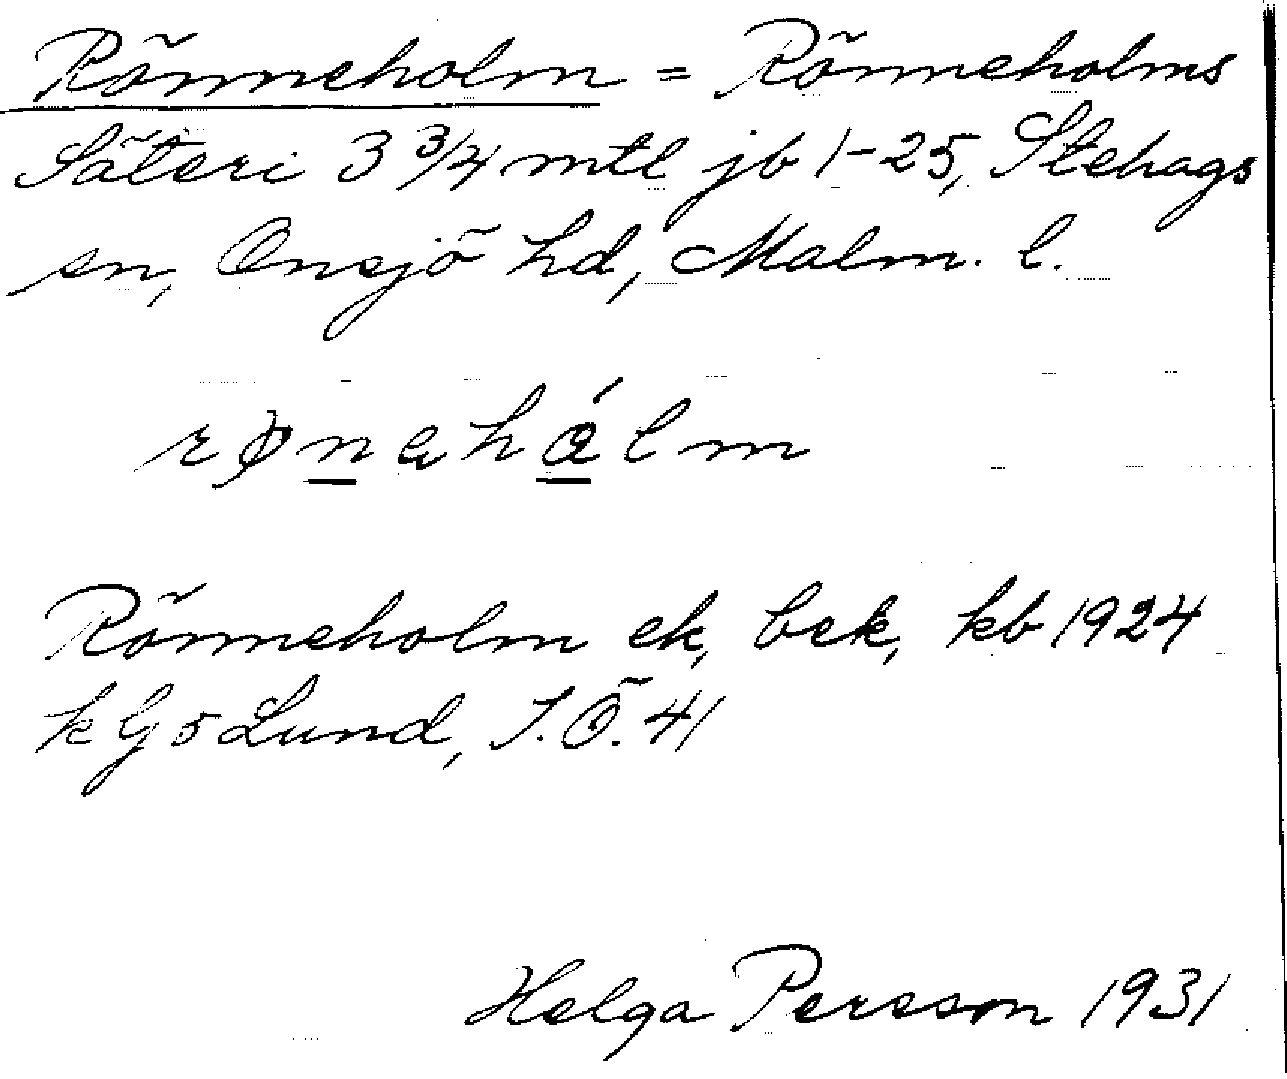 Rönneholm = Rönneholms
Säteri 3 3/4 mtl jb 1-25, Stehags
sn, Onsjö hd, Malm. l.
rønahålm
Rönneholm ek, bek, kb 1924
k G 5 Lund, J.Ö. 41
Helga Persson 1931